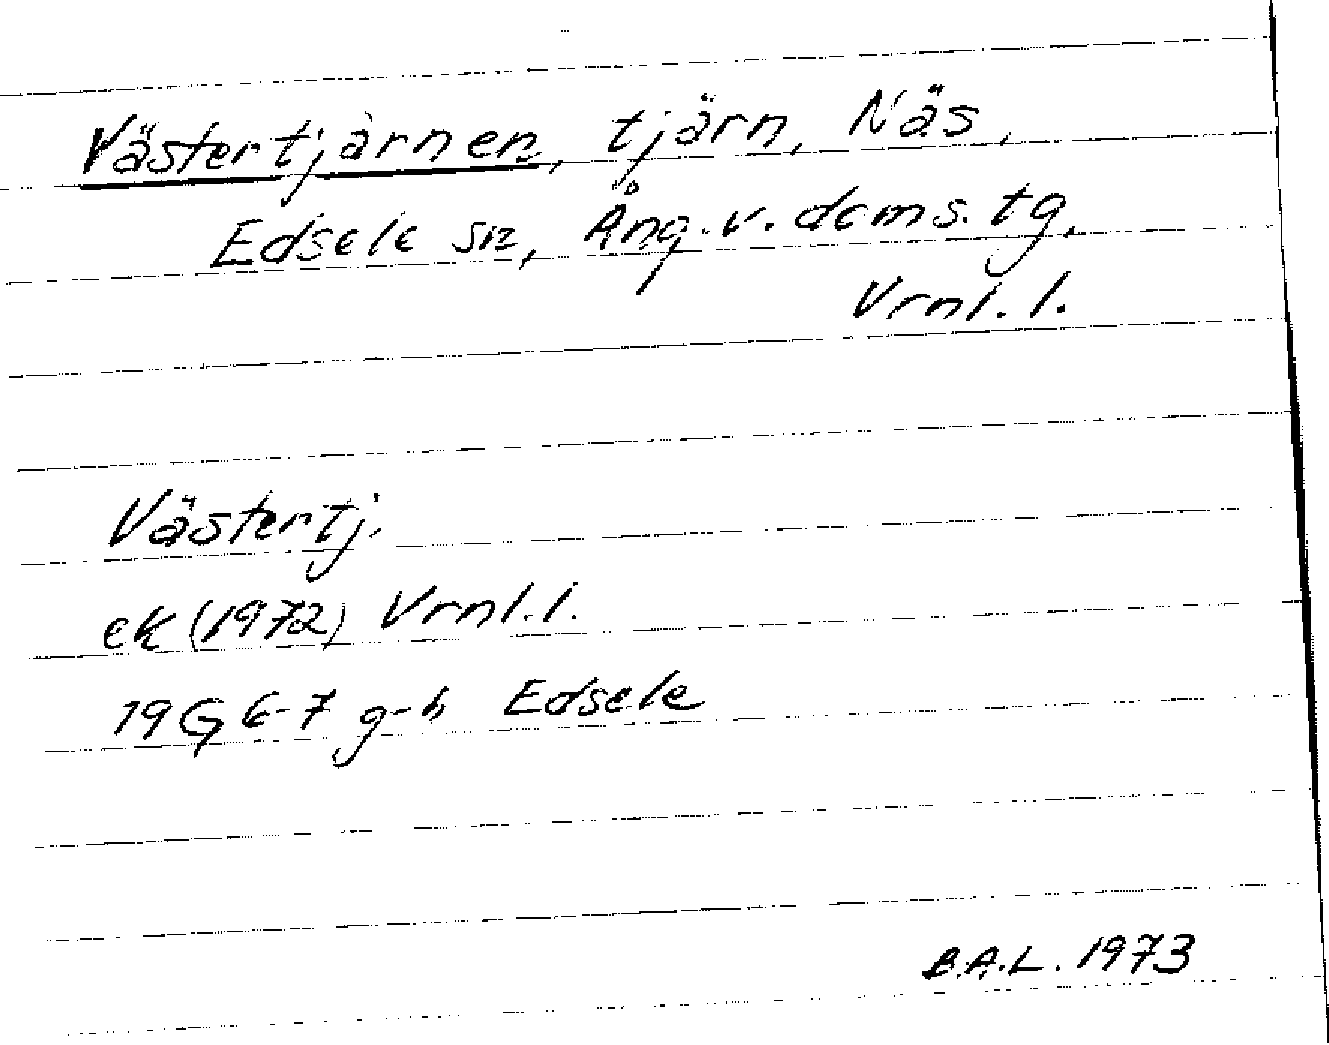 Västertjärnen, tjärn, Näs,
Edsele sn, Ång. v. doms. tg,
Vrnl. l.
Västertj.
ek (1972) Vrnl. l.
19G 6-7 g-h Edsele
B.A.L. 1973